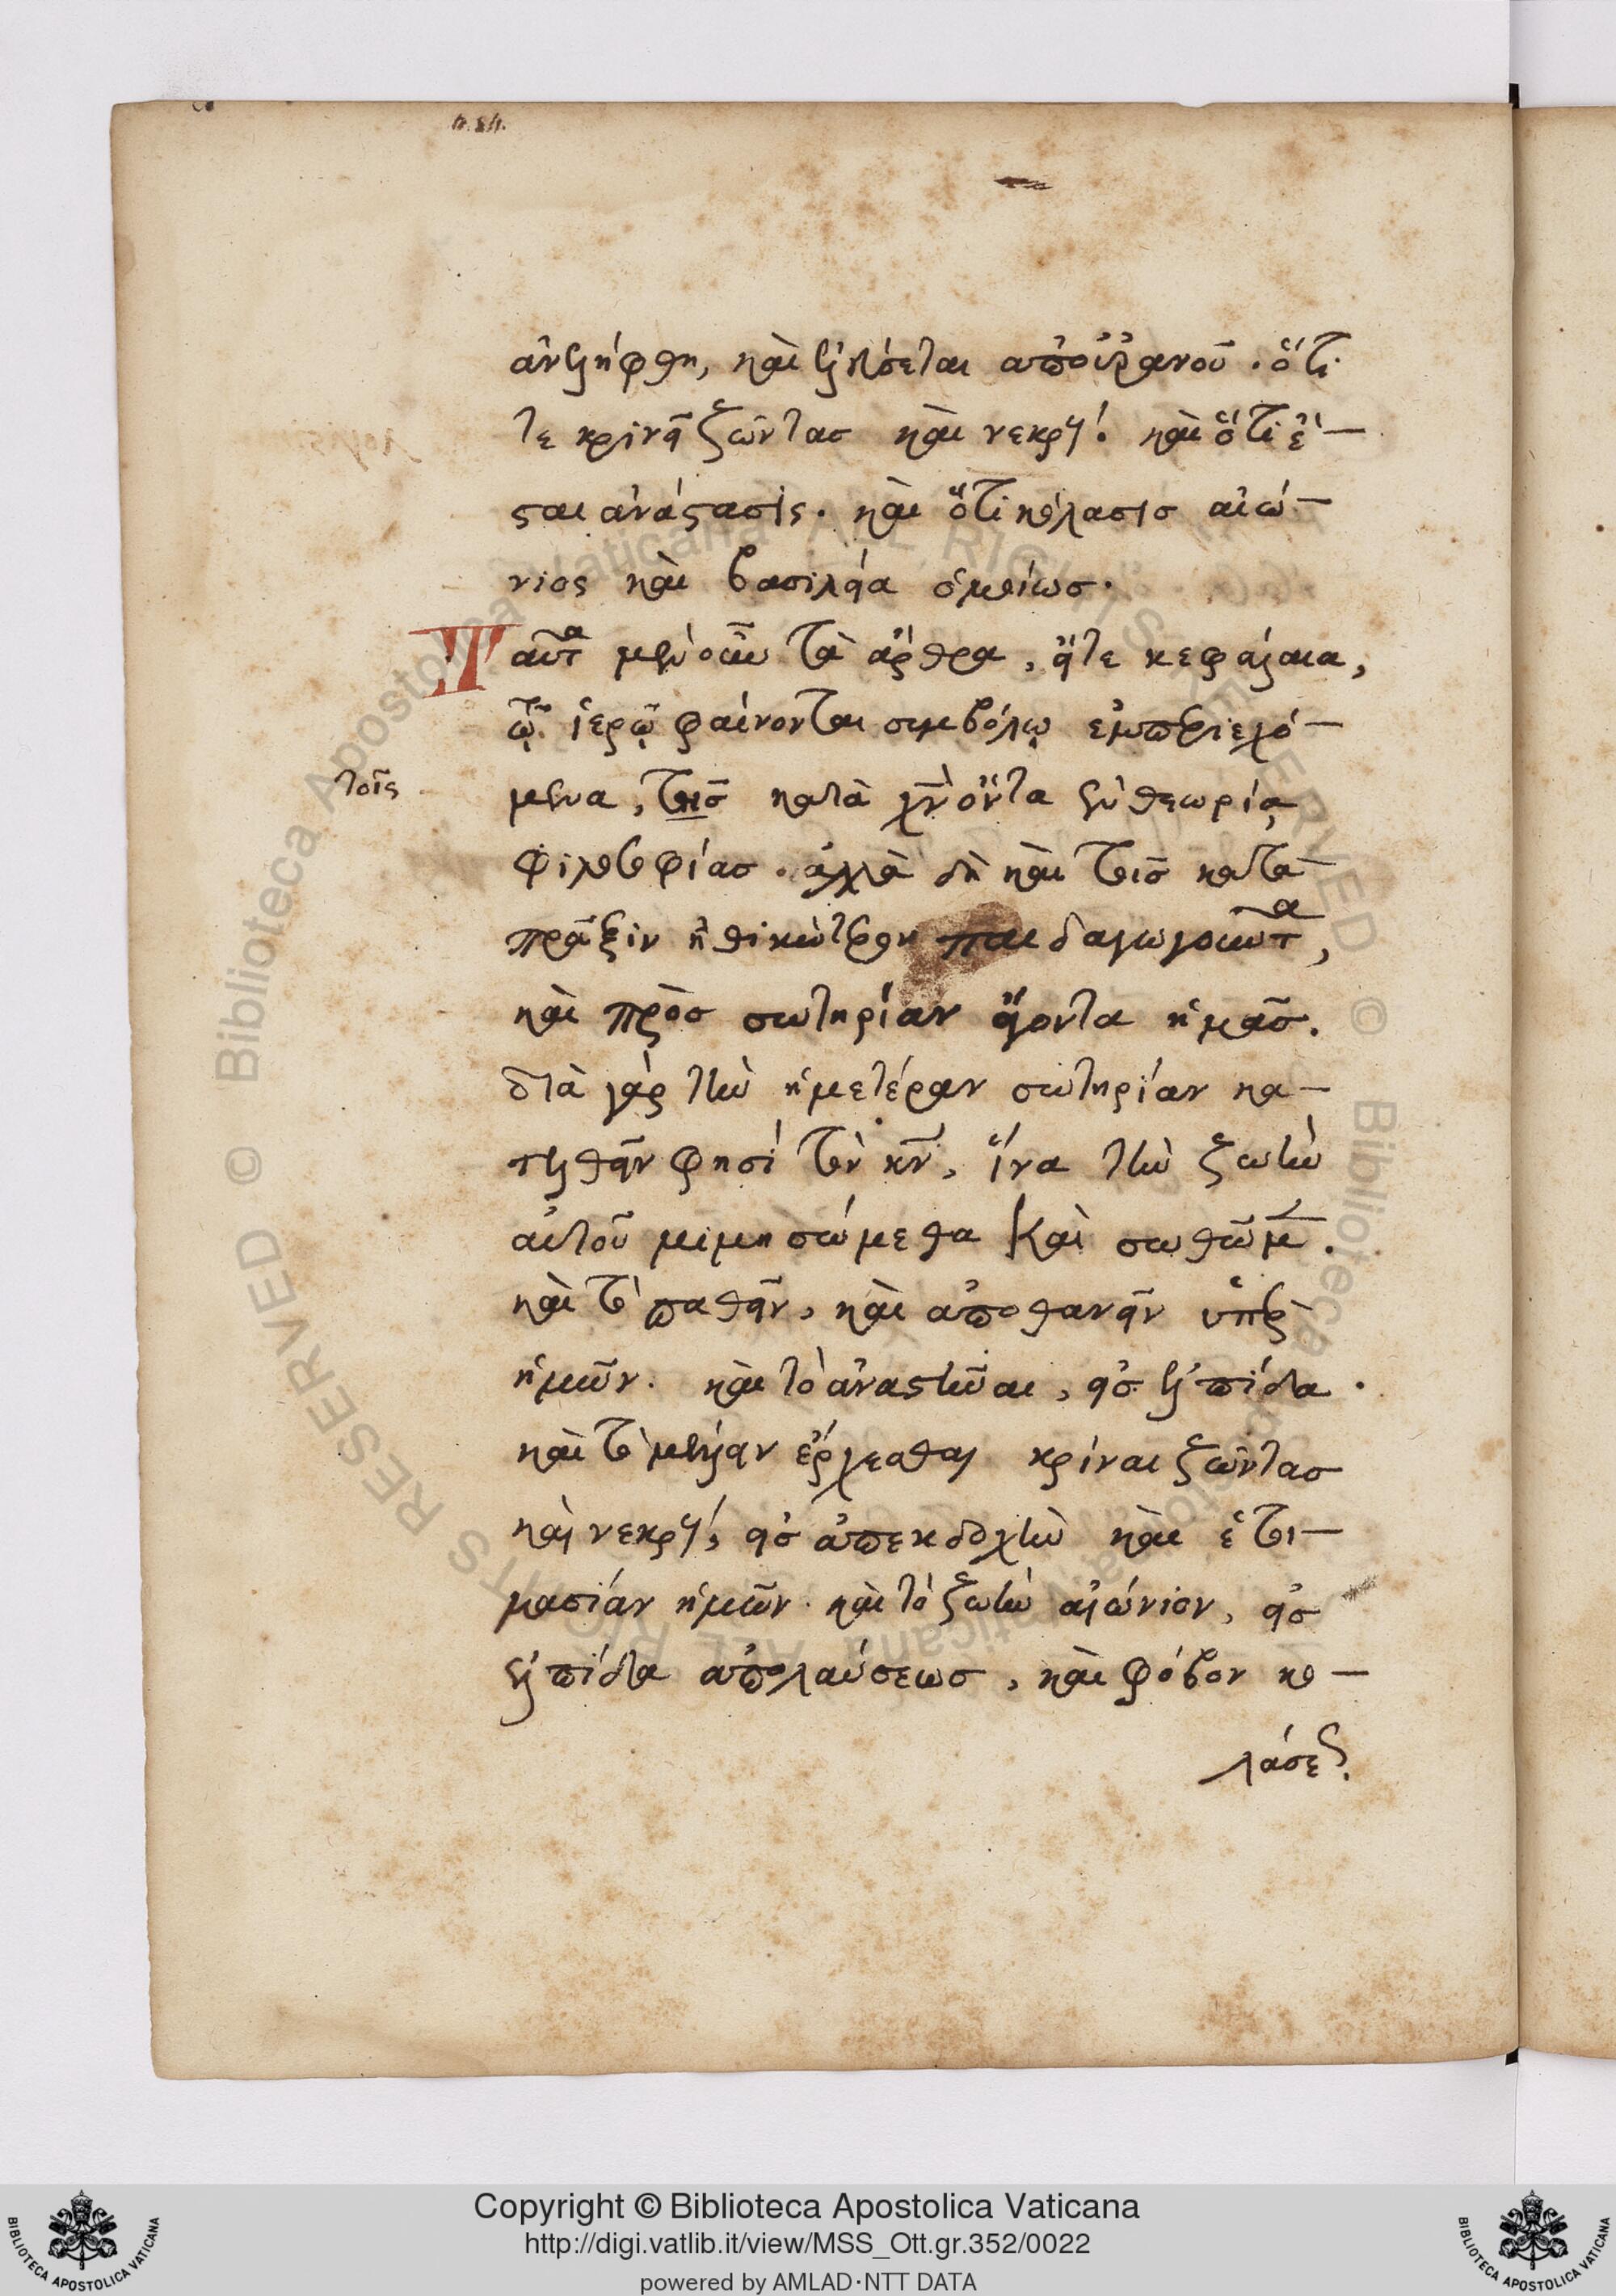 ἀνελήφθη, καὶ ἐλεύσεται ἀπ' οὐρανοῦ. ὅτι
τε κρινεῖ ζῶντας καὶ νεκρούς. καὶ ὅτι ἔ-
σται ἀνάστασις. καὶ ὅτι κόλασις αἰώ-
νιος καὶ βασιλεία ὁμοίως.
Ταῦτα μὲν οὖν τὰ ἄρθρα, εἴτε κεφάλαια,
τῷ ἱερῷ φαίνονται συμβόλῳ ἐμπεριεχό-
τοῖς
μενα, τῆς κατὰ χν ὄντα ἐν θεωρίᾳ
φιλοσοφίας. ἀλλὰ δὴ καὶ τοῖς κατὰ
πρᾶξιν ἠθικώτερον παιδαγωγοῦντα,
καὶ πρὸς σωτηρίαν ἄγοντα ἡμᾶς.
διὰ γὰρ τὴν ἡμετέραν σωτηρίαν κα-
τελθεῖν φησὶ τὸν κν, ἵνα τὴν ζωὴν
αὐτοῦ μιμησώμεθα καὶ σωθῶμεν.
καὶ τὸ παθεῖν, καὶ ἀποθανεῖν ὑπὲρ
ἡμῶν. καὶ τὸ ἀναστῆναι, εἰς ἐλπίδα.
καὶ τὸ μέλλειν ἔρχεσθαι κρῖναι ζῶντας
καὶ νεκρούς, εἰς ἀπεκδοχὴν καὶ ἑτοι-
μασίαν ἡμῶν. καὶ τὸ ζωὴν αἰώνιον, εἰς
ἐλπίδα ἀπολαύσεως, καὶ φόβον κο-
λάσεως.
Copyright © Biblioteca Apostolica Vaticana
http://digi.vatlib.it/view/MSS_Ott.gr.352/0022
powered by AMLAD·NTT DATA